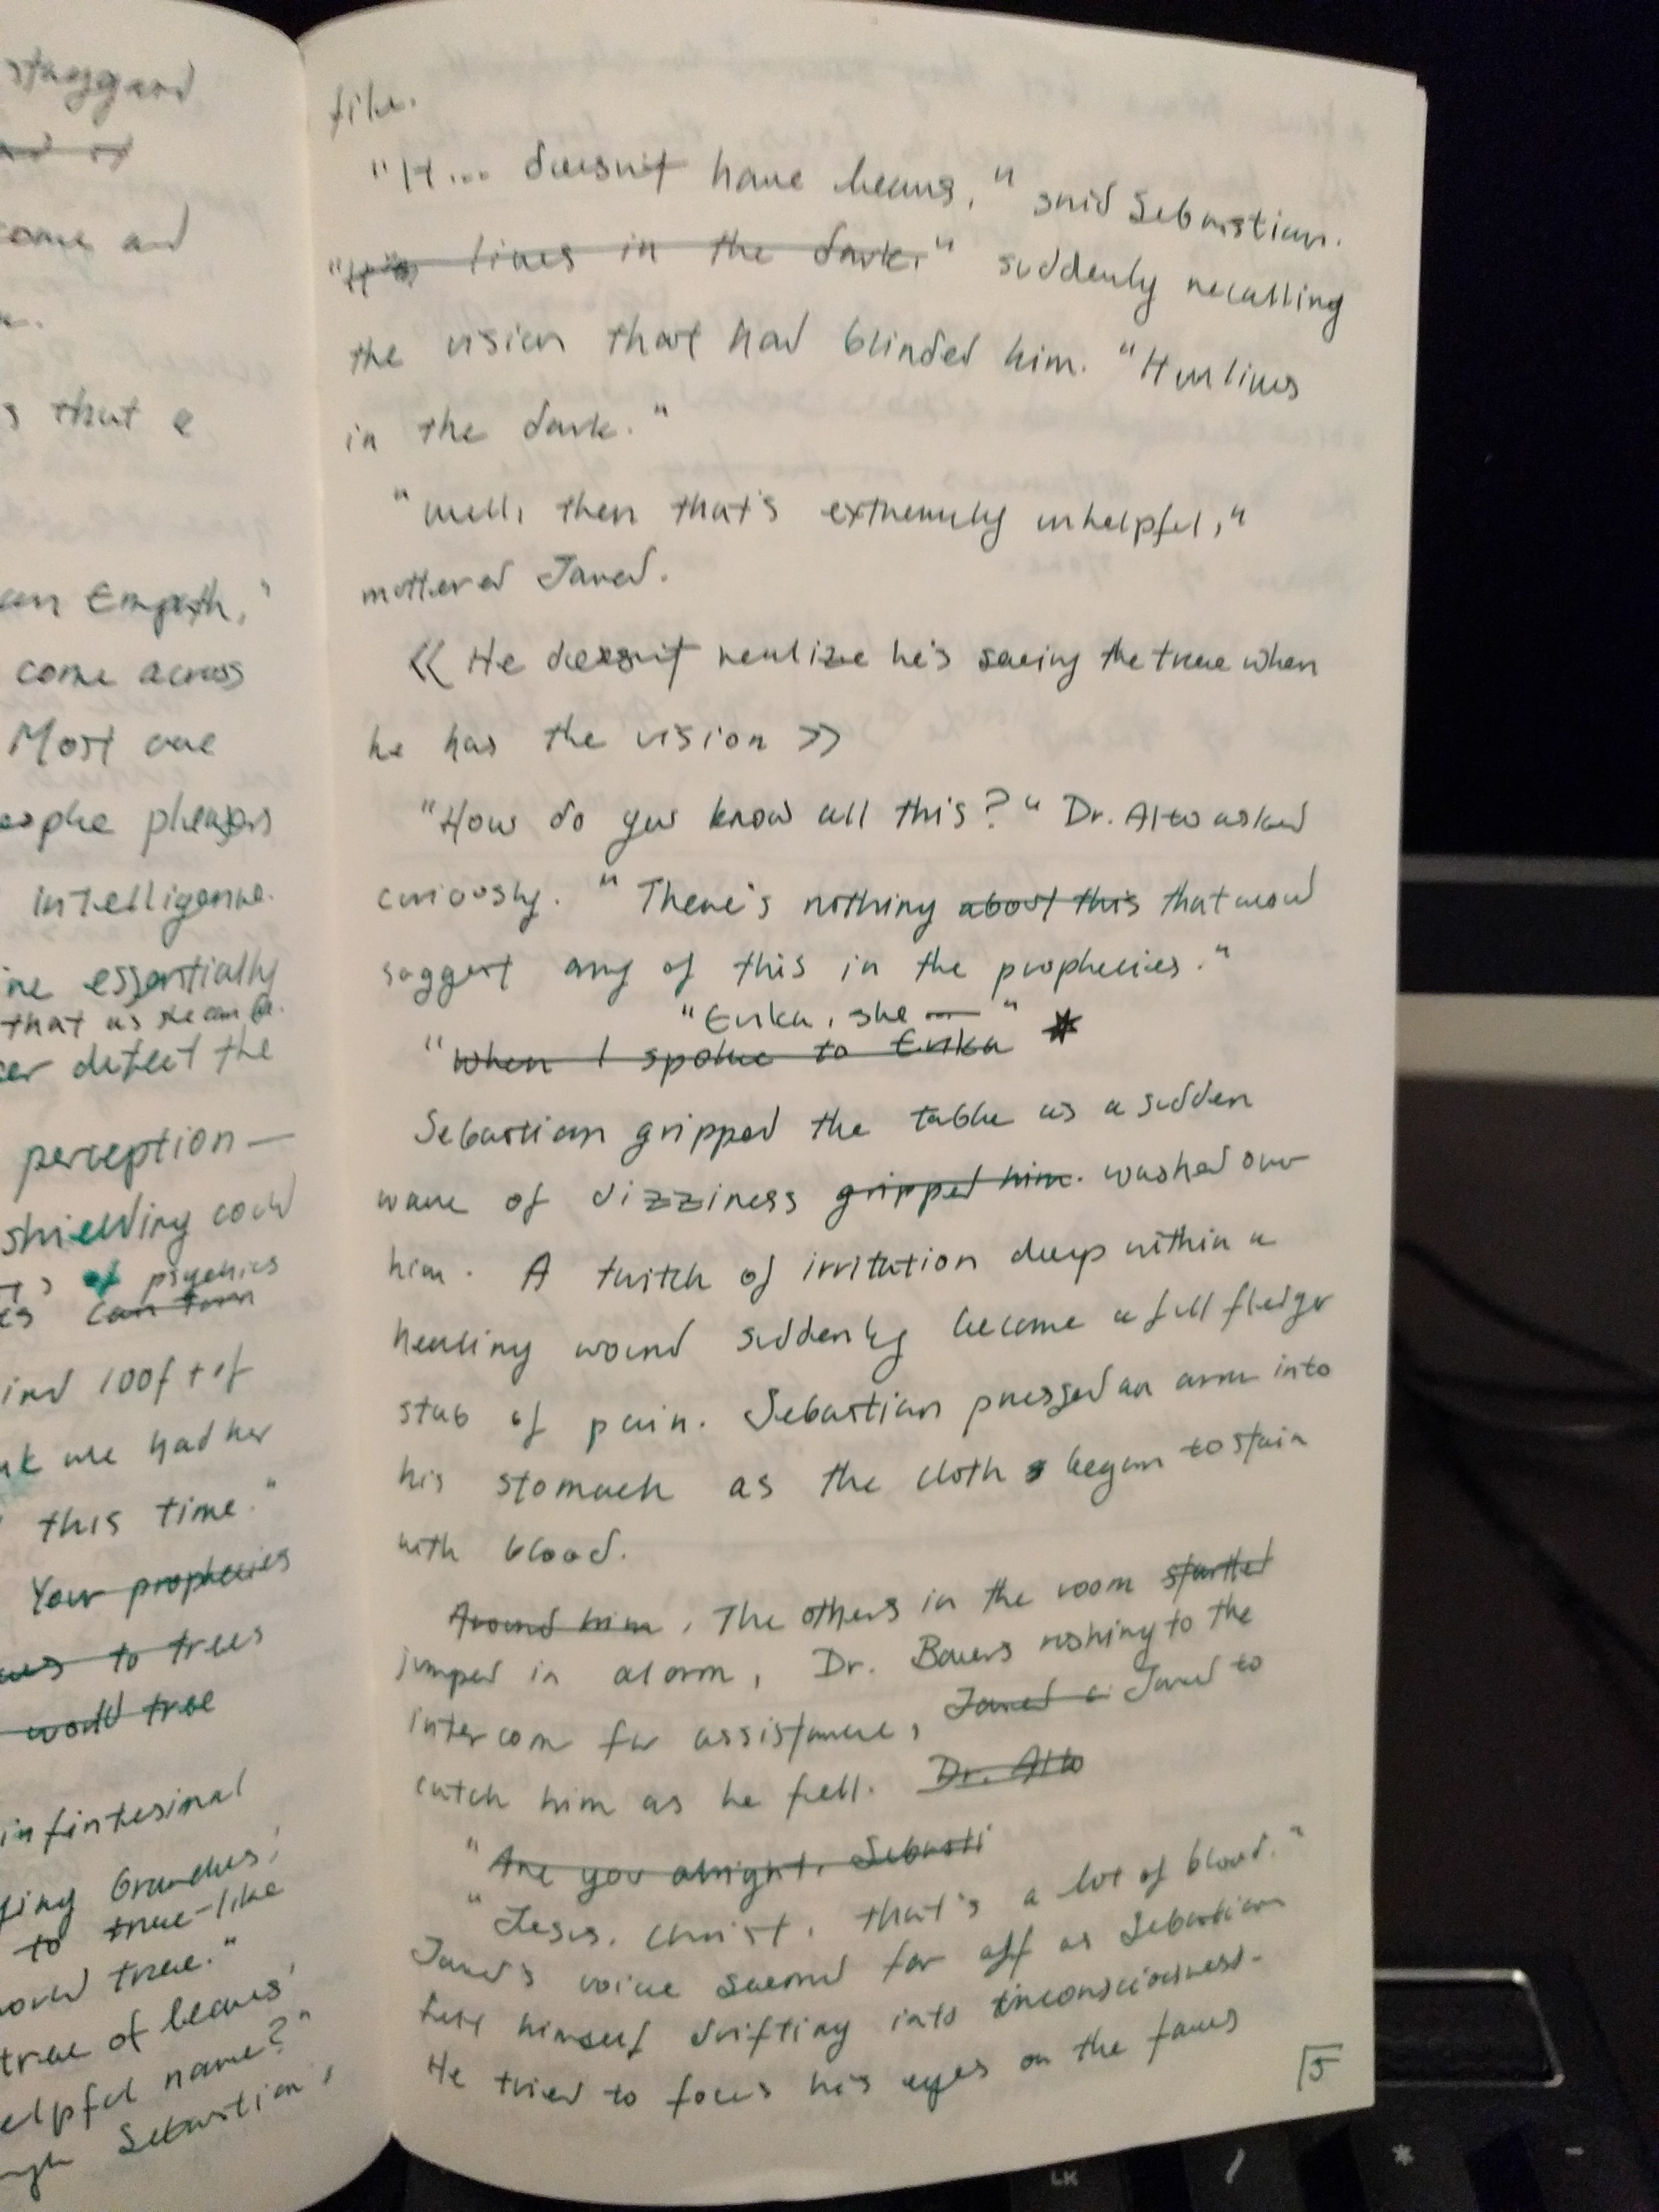 staggard
come and
s that e
an Empath,"
come across
Most are
people pleasers
intelligence.
ine essentially
that as she can be.
er detect the
perception—
shielding could
of psychics
can turn
ind 100ft of
we had her
this time."
Your prophecies
to trees
world tree
infintesimal
fying Grandus,
to tree-like
world tree."
tree of leaves
elpful name?"
Sebastian,
file.
"It... doesn't have leaves," said Sebastian.
"It's lives in the dark." suddenly recalling
the vision that had blinded him. "It lives
in the dark."
"Well, then that's extremely unhelpful,"
muttered Jared.
<< He doesn't realize he's seeing the tree when
he has the vision >>
"How do you know all this?" Dr. Alto asked
curiously. "There's nothing about this that would
suggest any of this in the prophecies."
"Erika, she — "
"When I spoke to Erika *
Sebastian gripped the table as a sudden
wave of dizziness gripped him. washed over
him. A twitch of irritation deep within a
healing wound suddenly become a full fledge
stab of pain. Sebastian pressed an arm into
his stomach as the cloth began to stain
with blood.
Around him, The others in the room startled
jumped in alarm, Dr. Bauers rushing to the
intercom for assistance, Jared a Jared to
catch him as he fell. Dr. Alto
"Are you alright, Sebasti
"Jesus. Christ, that's a lot of blood."
Jared's voice seemed far off as Sebastian
felt himself drifting into inconsciousness.
He tried to focus his eyes on the faces
15
LK
/
*
-